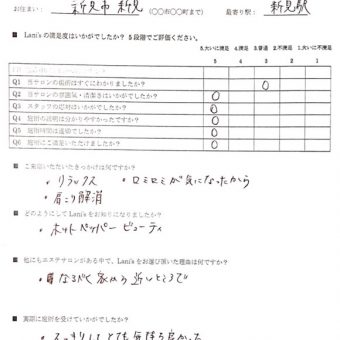 お住まい： 新見市 新見 （〇〇市〇〇町まで） 最寄り駅： 新見駅
■ Lani'sの満足度はいかがでしたか？ 5段階でご評価ください。
5.大いに満足 4.満足 3.普通 2.不満足 1.大いに不満足
5 4 3 2 1
Q1 当サロンの場所はすぐにわかりましたか？ ○
Q2 当サロンの雰囲気・清潔さはいかがでしたか？ ○
Q3 スタッフの応対はいかがでしたか？ ○
Q4 施術の説明は分かりやすかったですか？ ○
Q5 施術時間は適切でしたか？ ○
Q6 施術にご満足いただけましたか？ ○
■ ご来店いただいたきっかけは何ですか？
・リラックス ・ロミロミが気になったから
・肩こり解消
■ どのようにしてLani'sをお知りになりましたか？
・ホットペッパー ビューティ
■ 他にもエステサロンがある中で、Lani'sをお選び頂いた理由は何ですか？
・なるべく家から近いところで
■ 実際に施術を受けていかがでしたか？
・スッキリしてとても気持ち良かった